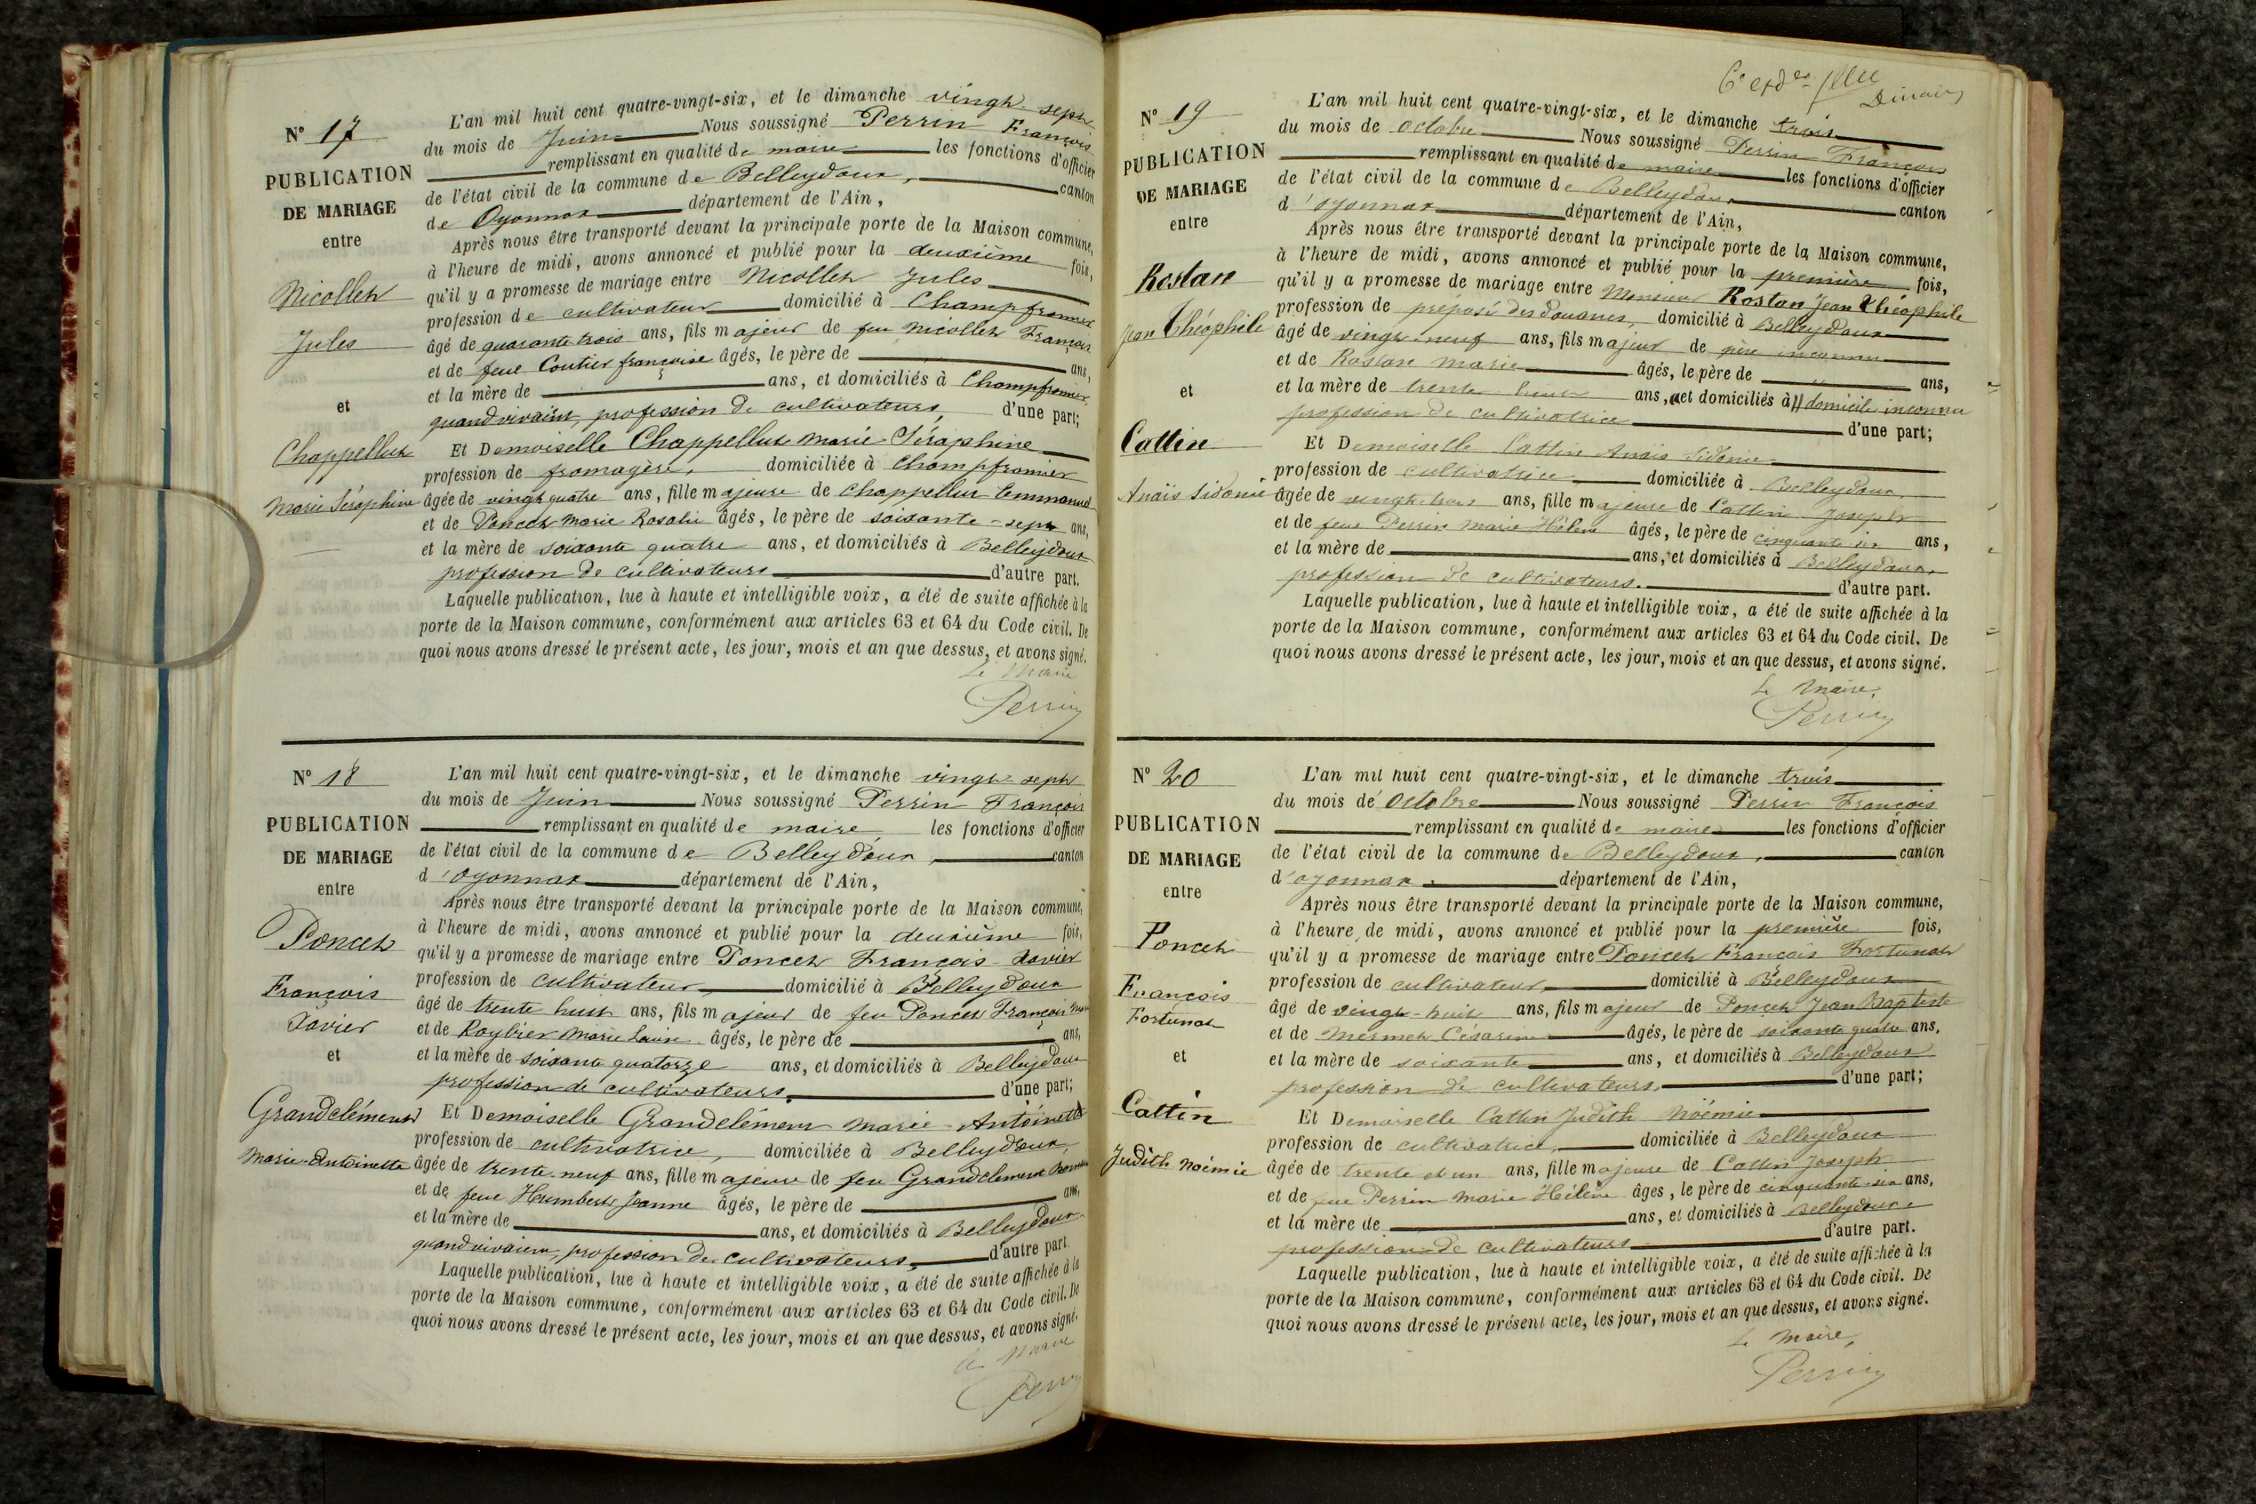 N° 17
PUBLICATION
DE MARIAGE
entre
Nicollet
Jules
et
Chappelluz
Marie Séraphine
L'an mil huit cent quatre-vingt-six, et le dimanche vingt-sept
du mois de Juin Nous soussigné Perrin François
remplissant en qualité de maire les fonctions d'officier
de l'état civil de la commune de Belleydoux, canton
de Oyonnax département de l'Ain,
Après nous être transporté devant la principale porte de la Maison commune,
à l'heure de midi, avons annoncé et publié pour la deuxième fois,
qu'il y a promesse de mariage entre Nicollet Jules
profession de cultivateur domicilié à Champfromier
âgé de quarante trois ans, fils majeur de feu Nicollet François
et de feue Coutier françoise âgés, le père de ans,
et la mère de ans, et domiciliés à Champfromier,
quand vivaient, profession de cultivateurs, d'une part;
Et Demoiselle Chappelluz Marie Séraphine
profession de fromagère, domiciliée à Champfromier
âgée de vingt quatre ans, fille majeure de Chappelluz Emmanuel
et de Poncet Marie Rosalie âgés, le père de soixante-sept ans,
et la mère de soixante quatre ans, et domiciliés à Belleydoux
profession de cultivateurs d'autre part.
Laquelle publication, lue à haute et intelligible voix, a été de suite affichée à la
porte de la Maison commune, conformément aux articles 63 et 64 du Code civil. De
quoi nous avons dressé le présent acte, les jour, mois et an que dessus, et avons signé.
Le Maire
Perrin
N° 18
PUBLICATION
DE MARIAGE
entre
Poncet
François
Xavier
et
Grandclément
Marie-Antoinette
L'an mil huit cent quatre-vingt-six, et le dimanche vingt-sept
du mois de Juin Nous soussigné Perrin François
remplissant en qualité de maire, les fonctions d'officier
de l'état civil de la commune de Belleydoux, canton
d'oyonnax département de l'Ain,
Après nous être transporté devant la principale porte de la Maison commune,
à l'heure de midi, avons annoncé et publié pour la deuxième fois,
qu'il y a promesse de mariage entre Poncet François-Xavier
profession de cultivateur, domicilié à Belleydoux
âgé de trente huit ans, fils majeur de feu Poncet François
et de Roybier Marie âgés, le père de ans,
et la mère de soixante quatorze ans, et domiciliés à Belleydoux
profession de cultivateurs, d'une part;
Et Demoiselle Grandclément Marie-Antoinette
profession de cultivatrice, domiciliée à Belleydoux,
âgée de trente-neuf ans, fille majeure de feu Grandclément
et de feue Humbert Jeanne âgés, le père de ans,
et la mère de ans, et domiciliés à Belleydoux
quand vivaient, profession de cultivateurs, d'autre part.
Laquelle publication, lue à haute et intelligible voix, a été de suite affichée à la
porte de la Maison commune, conformément aux articles 63 et 64 du Code civil. De
quoi nous avons dressé le présent acte, les jour, mois et an que dessus, et avons signé.
Le Maire
Perrin
N° 19
PUBLICATION
DE MARIAGE
entre
Rostan
Jean Théophile
et
Cattin
Anaïs Sidonie
L'an mil huit cent quatre-vingt-six, et le dimanche trois
du mois de octobre Nous soussigné Perrin François
remplissant en qualité de maire les fonctions d'officier
de l'état civil de la commune de Belleydoux canton
d'oyonnax département de l'Ain,
Après nous être transporté devant la principale porte de la Maison commune,
à l'heure de midi, avons annoncé et publié pour la première fois,
qu'il y a promesse de mariage entre Monsieur Rostan Jean Théophile
profession de préposé des douanes, domicilié à Belleydoux
âgé de vingt-neuf ans, fils majeur de père inconnu
et de Rostan Marie âgés, le père de " ans,
et la mère de trente huit ans, et domiciliés à domicile inconnu
profession de cultivatrice d'une part;
Et Demoiselle Cattin Anaïs Sidonie
profession de cultivatrice domiciliée à Belleydoux
âgée de vingt-trois ans, fille majeure de Cattin Joseph
et de feue Perrin Marie Hélène âgés, le père de cinquante six ans,
et la mère de ans, et domiciliés à Belleydoux,
profession de cultivateurs. d'autre part.
Laquelle publication, lue à haute et intelligible voix, a été de suite affichée à la
porte de la Maison commune, conformément aux articles 63 et 64 du Code civil. De
quoi nous avons dressé le présent acte, les jour, mois et an que dessus, et avons signé.
Le Maire,
Perrin
N° 20
PUBLICATION
DE MARIAGE
entre
Poncet
François
Fortunat
et
Cattin
Judith Noémie
L'an mil huit cent quatre-vingt-six, et le dimanche trois
du mois de Octobre Nous soussigné Perrin François
remplissant en qualité de maire les fonctions d'officier
de l'état civil de la commune de Belleydoux, canton
d'oyonnax. département de l'Ain,
Après nous être transporté devant la principale porte de la Maison commune,
à l'heure de midi, avons annoncé et publié pour la première fois,
qu'il y a promesse de mariage entre Poncet François Fortunat
profession de cultivateur, domicilié à Belleydoux
âgé de vingt-huit ans, fils majeur de Poncet Jean Baptiste
et de Mermet Césarine âgés, le père de soixante quatre ans,
et la mère de soixante ans, et domiciliés à Belleydoux
profession de cultivateurs, d'une part;
Et Demoiselle Cattin Judith Noémie
profession de cultivatrice, domiciliée à Belleydoux
âgée de trente et un ans, fille majeure de Cattin Joseph
et de feue Perrin Marie Hélène âgés, le père de cinquante-six ans,
et la mère de ans, et domiciliés à Belleydoux,
profession de cultivateurs d'autre part.
Laquelle publication, lue à haute et intelligible voix, a été de suite affichée à la
porte de la Maison commune, conformément aux articles 63 et 64 du Code civil. De
quoi nous avons dressé le présent acte, les jour, mois et an que dessus, et avons signé.
Le Maire,
Perrin